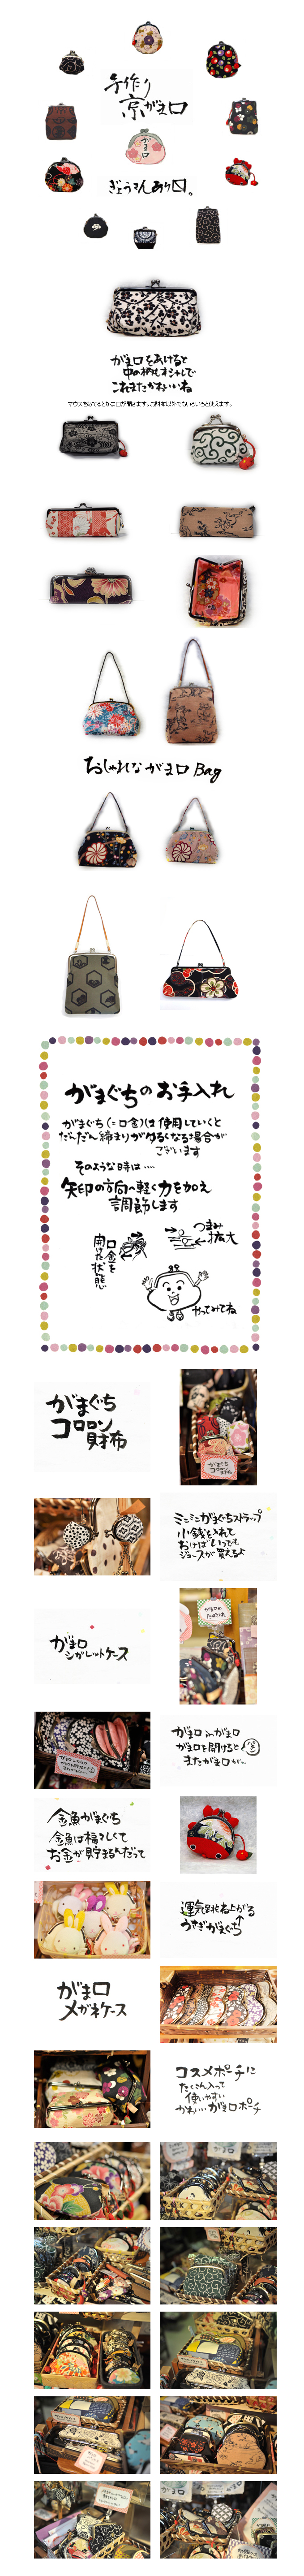 手作り
京がま口
がま口
ぎょうさんあり口。
がま口をあけると
中の柄もオシャレで
これまたかわいいね
マウスをあてるとがま口が開きます。お財布以外でもいろいろと使えます。
おしゃれな がま口 Bag
がまぐちのお手入れ
がまぐち(=口金)は使用していくと
だんだん締まりがゆるくなる場合が
ございます
そのような時は‥‥
矢印の方向へ軽く力を加え
調節します
口金を
開けた状態
つまみ
拡大
やってみてね
がまぐち
コロロン
財布
がまぐち
ミニミニがまぐちストラップ
小銭を入れて
おけばいつでも
ジュースが買えるよ
がま口
シガレットケース
がま口inがま口
がま口を開けると
またがま口が…
金魚がまぐち
金魚は福々しくて
お金が貯まるんだって
運気跳ね上がる
うさぎがまぐち
がま口
メガネケース
コスメポーチに
たくさん入って
使いやすい
かわいいがま口ポーチ